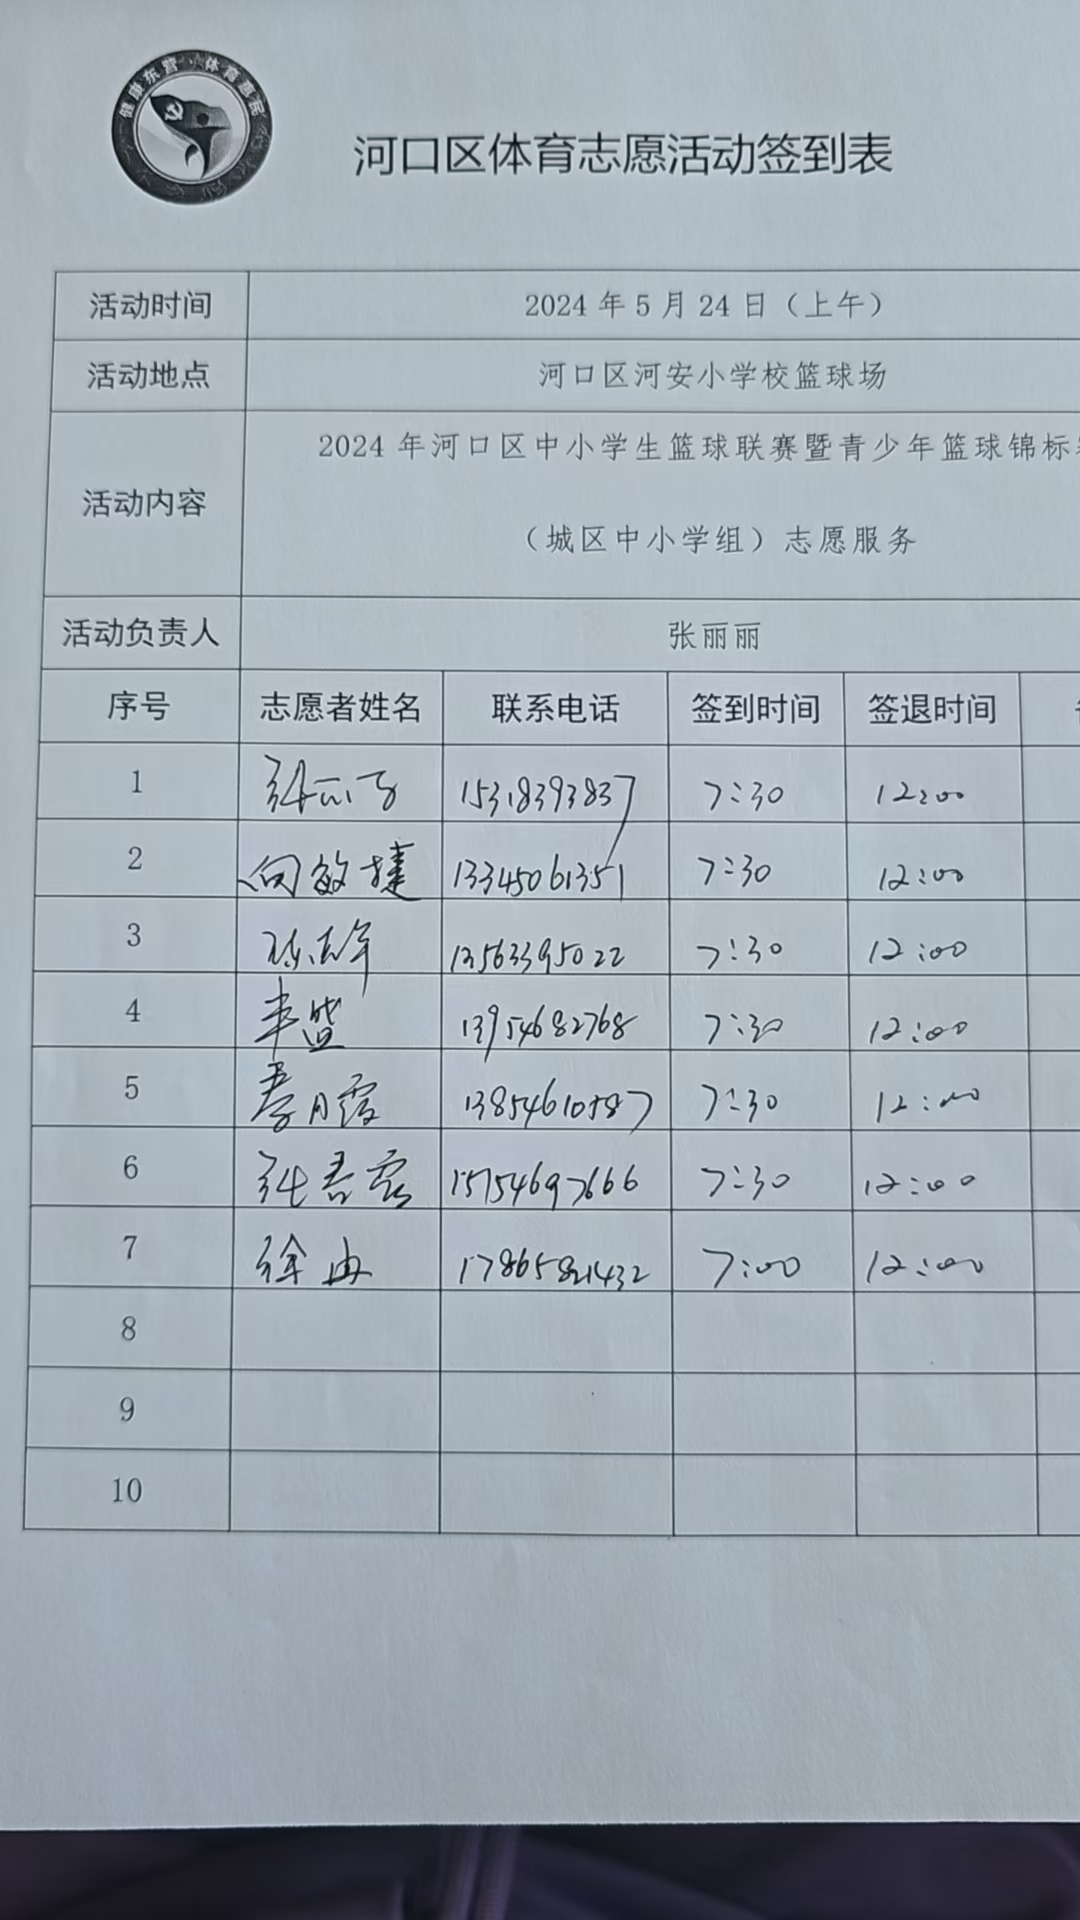 健康东营·体育惠民
河口区体育志愿活动签到表
活动时间 2024 年 5 月 24 日（上午）
活动地点 河口区河安小学校篮球场
2024 年河口区中小学生篮球联赛暨青少年篮球锦标
活动内容
（城区中小学组）志愿服务
活动负责人 张丽丽
序号 志愿者姓名 联系电话 签到时间 签退时间
1 15318393837 7:30 12:00
2 向敏捷 13345061351 7:30 12:00
3 13563395022 7:30 12:00
4 13954682768 7:30 12:00
5 秦月霞 13854610587 7:30 12:00
6 15754697666 7:30 12:00
7 徐冉 17865821432 7:00 12:00
8
9
10